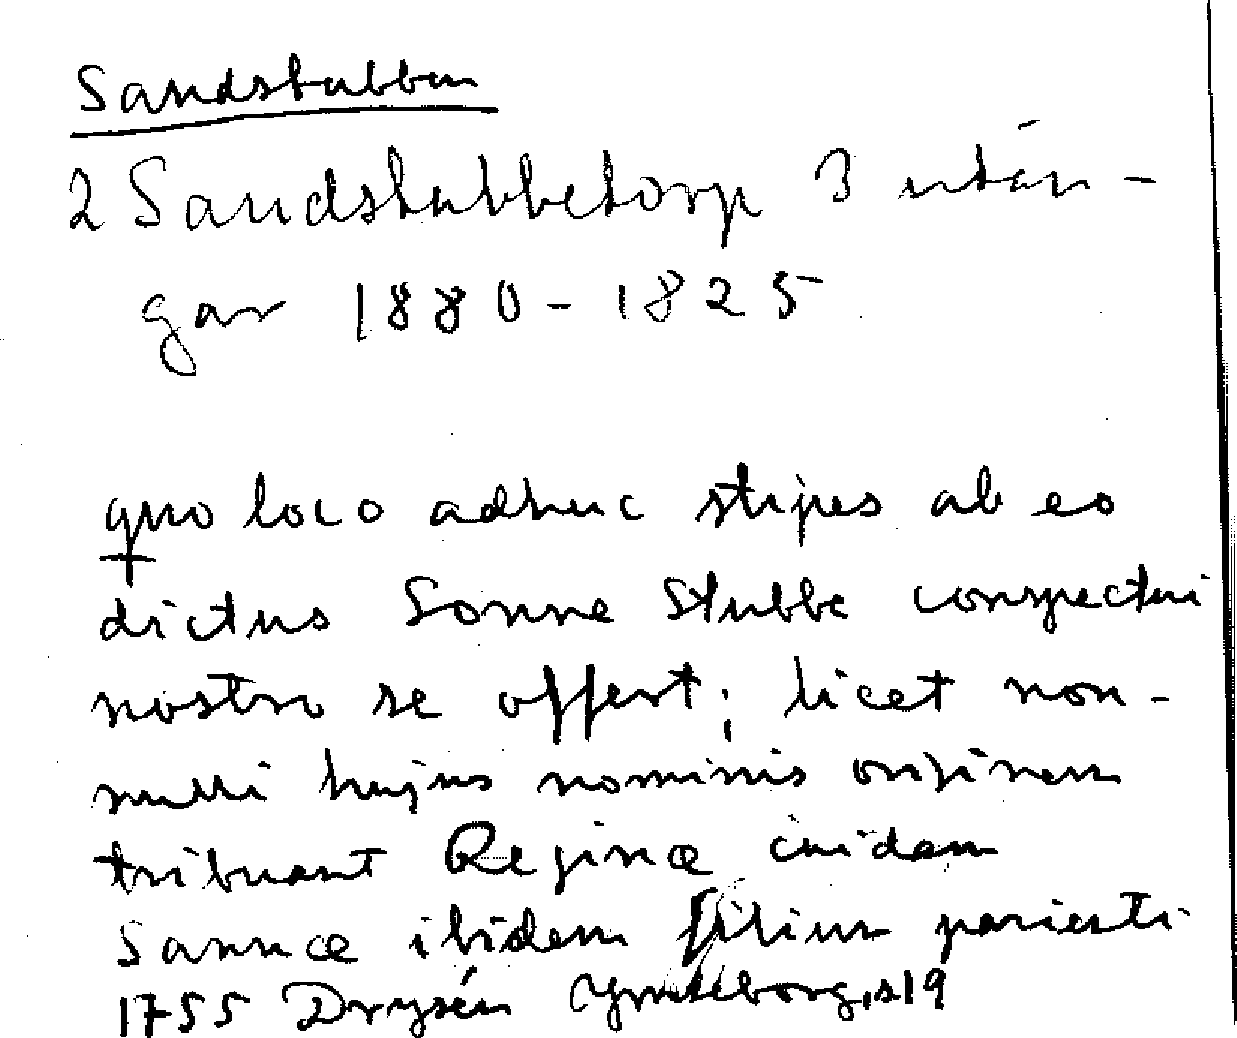 Sandstubben
2 Sandstubbetorp 3 utän-
gar 1880-1825
quo loco adhuc stipes ab eo
dictus Sonne Stubbe conspectui
nostro se offert; licet non-
nulli hujus nominis originem
tribuant Reginæ cuidam
Sannæ ibidem filium parienti
1755 Drysén Cymbeborg, s 19